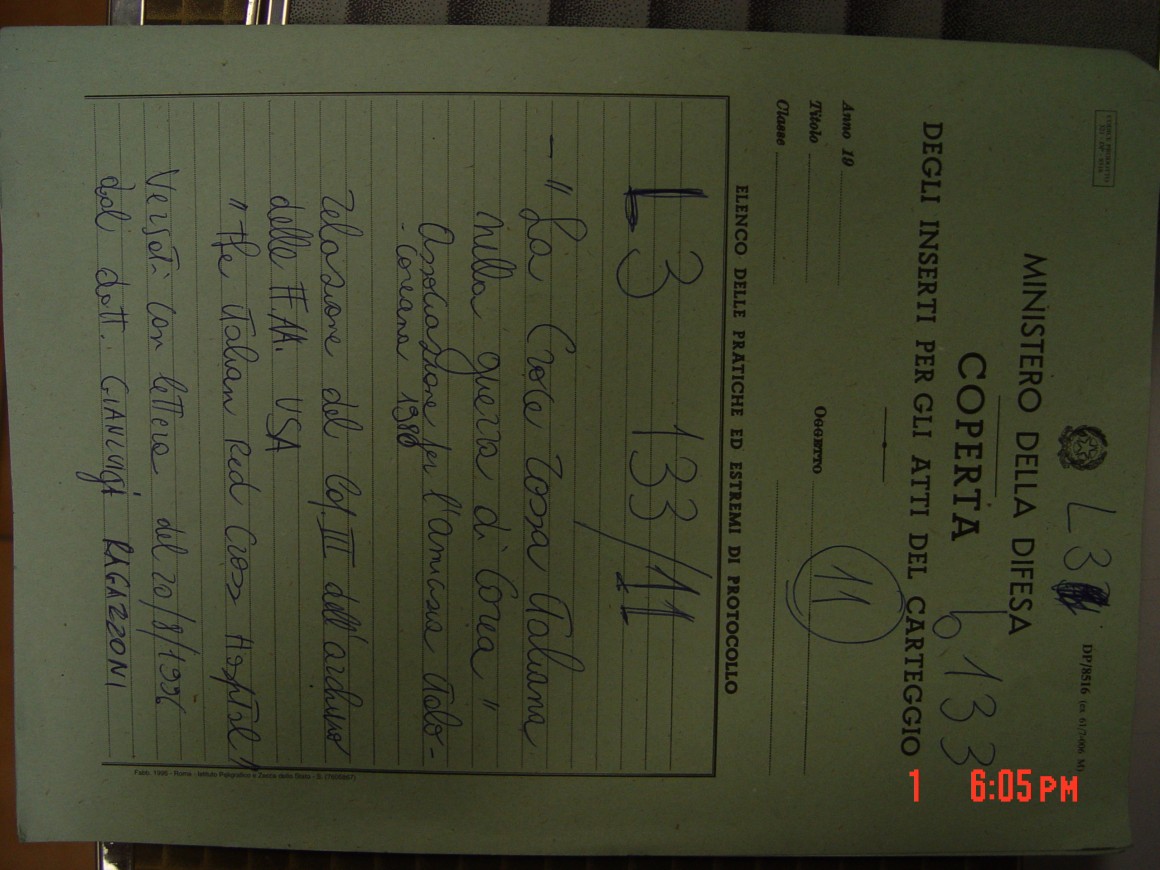 L3
DP/8516 (ex 61/7-006 M)
MINISTERO DELLA DIFESA
b.133
COPERTA
DEGLI INSERTI PER GLI ATTI DEL CARTEGGIO
Anno 19
Titolo
Classe
OGGETTO
11
ELENCO DELLE PRATICHE ED ESTREMI DI PROTOCOLLO
L3 133/11
— "La Croce Rossa Italiana,
nella guerra di Corea"
Associazione per l'amicizia Italo-
-Coreana 1986
Relazione del Cap. III dell'archivio
delle FF.AA. USA
"The Italian Red Cross Hospital"
Versati con lettera del 20/8/1996
dal dott. GIANLUIGI RAGAZZONI
Fabb. 1995 - Roma - Istituto Poligrafico e Zecca dello Stato - S.
1 6:05PM